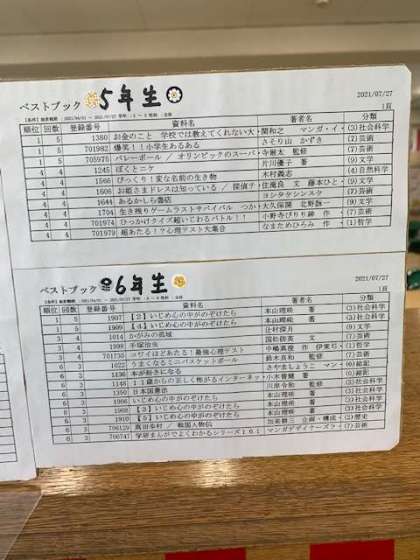 ベストブック 5年生 2021/07/27
1頁
順位 回数 登録番号 資料名 著者名 分類
1 5 1380 お金のこと 学校では教えてくれない大 関和之 マンガ・イ (3)社会科学
1 5 701982 爆笑!!小学生あるある さそり山 かずき (7)芸術
1 5 705975 バレーボール / オリンピックのスーパ 寺廻太 監修 (7)芸術
4 4 1245 ぼくとニケ 片川優子 著 (9)文学
4 4 1566 びっくり!変な名前の生き物 木村義志 (4)自然科学
4 4 1608 お姫さまドレスは知っている / 探偵チ 住滝良 文 藤本ひと (9)文学
4 4 1644 あるかしら書店 ヨシタケシンスケ (7)芸術
4 4 1704 生き残りゲームラストサバイバル つか 大久保開 北野詠一 (9)文学
4 4 701974 ひっかけクイズ超いてわバトル!! 小野寺ぴりり紳 作 (7)芸術
4 4 701979 超あたる!?心理テスト大集合 なまためひろみ 作 (1)哲学
ベストブック 6年生 2021/07/27
1頁
順位 回数 登録番号 資料名 著者名 分類
1 5 1907 【2】いじめ心の中がのぞけたら 本山理咲 著 (3)社会科学
1 5 1909 【4】いじめ心の中がのぞけたら 本山理咲 著 (3)社会科学
3 4 1014 かがみの孤城 辻村深月 (9)文学
3 4 手塚治虫 国松俊英 文 (7)芸術
3 4 コワイほどあたる!最強心理テスト 中嶋真澄 作
6 3 うまくなるミニバスケットボール 鈴木良和 監修 (7)芸術
6 3 1136 本が好きになる
6 3 1146 11歳からの正しく怖がるインターネッ 小木曽健 著
6 3 1350 日本国憲法 川岸令和 監修 (3)社会科学
6 3 1906 いじめ心の中がのぞけたら 本山理咲 著 (3)社会科学
6 3 1908 【3】いじめ心の中がのぞけたら 本山理咲 著 (3)社会科学
6 3 1910 【5】いじめ心の中がのぞけたら 本山理咲 著 (3)社会科学
6 3 706129 真田幸村 / 戦国人物伝 加来耕三 企画・構成 (2)歴史
6 3 706747 学研まんがでよくわかるシリーズ101 マンガデザイナーズラ (7)芸術